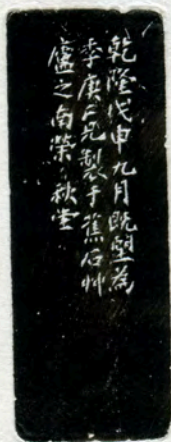 乾隆戊申九月既望為
季庚二兄製于蕉石艸
廬之南榮秋堂